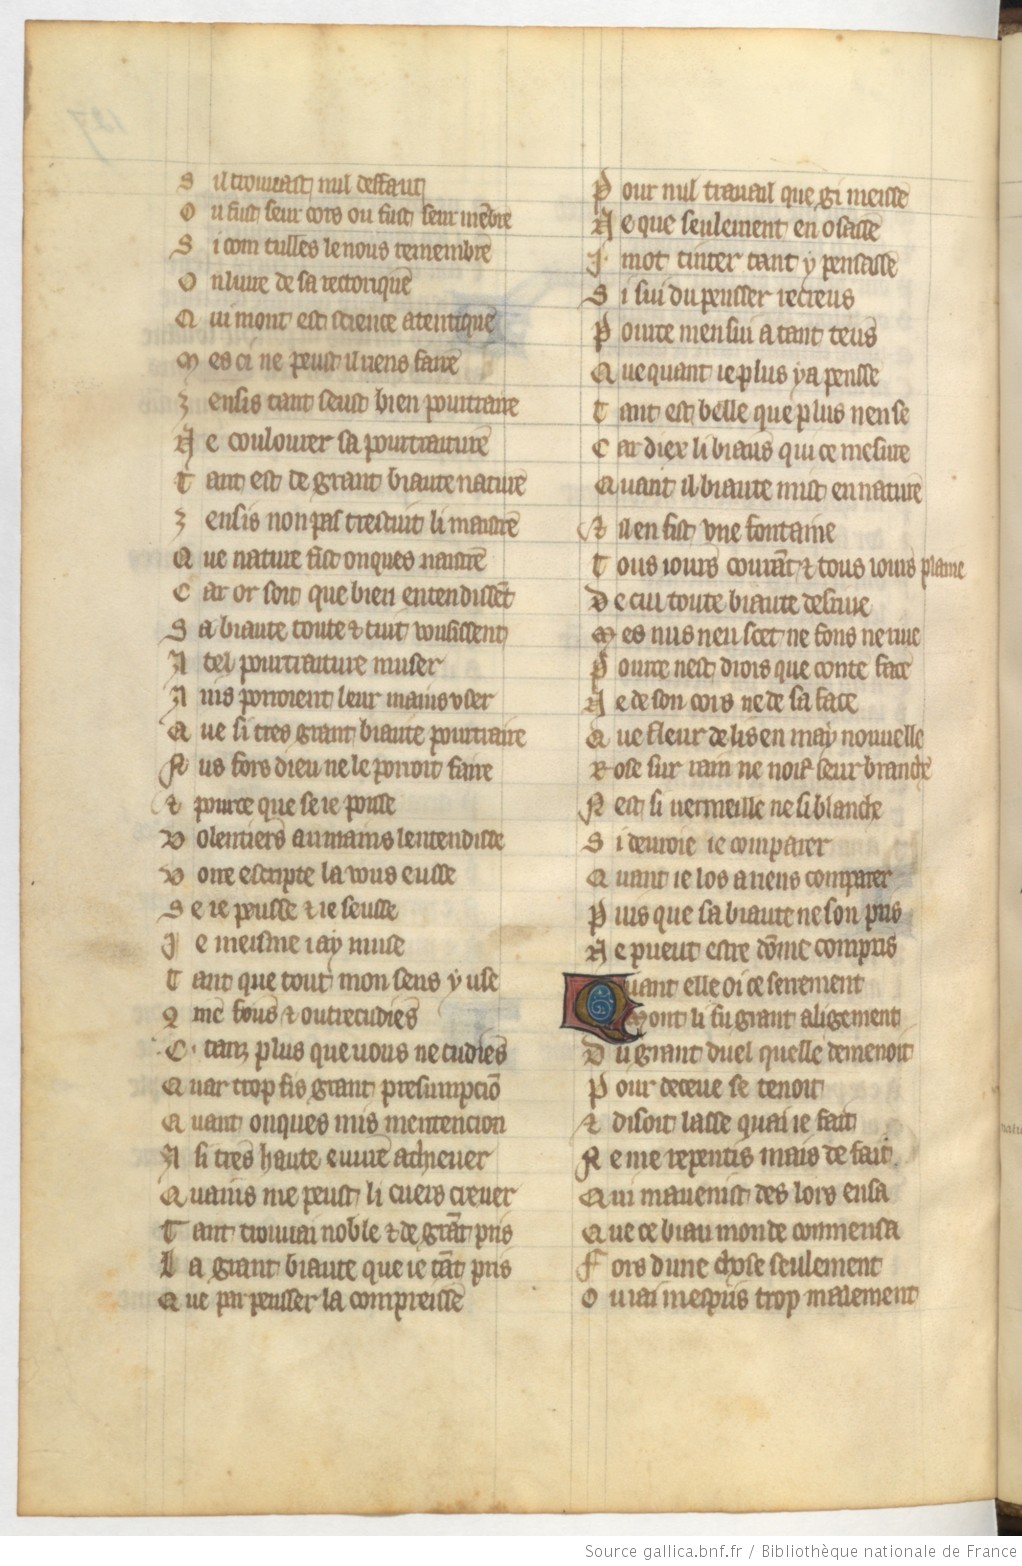 S il trouuast nul deffaut
O u fust seur cors ou fust seur mēbre
S i com tulles le nous remembre
O u liure de sa rectorique
Q ui mont est science atentique
M es ci ne peust il riens faire
Z ensis tant seust bien pourtraire
N e coulourer sa pourtraiture
T ant est de grant biaute nature
Z ensis non pas trestuit li maistre
Q ue nature fist onques naistre
C ar or soit que bien entendissēt
S a biaute toute & tuit vousissent
A tel pourtraiture muser
A uis porroient leur mains vser
Q ue si tres grant biaute pourtraire
N us fors dieu ne le porroit faire
& pource que se ie poisse
V olentiers au mains lentendisse
V oire escripte la vous eusse
S e ie peusse & ie seusse
J e meisme i ay muse
T ant que tout mon sens y use
9 me fous & outrecudies
C tanz plus que vous ne cudies
Q uar trop fis grant presumpciō
Q uant onques mis mentencion
A si tres haute euure acheuer
Q uains me peust li cuers creuer
T ant trouuai noble & de grāt pris
L a grant biaute que ie tāt pris
Q ue par penser la compreisse
P our nul trauail que gi meisse
N e que seulement en osasse
J mot tinter tant y pensasse
S i sui du penser recreus
P ource men sui a tant teus
Q ue quant ie plus y a pensse
T ant est belle que plus nen se
C ar diex li biaus qui ce mesure
Q uant il biaute mist en nature
& il en fist vne fontaine
T ous iours courāt & tous iours plaine
D e cui toute biaute desriue
M es nus nen scet ne fons ne riue
P ource nest drois que conte face
N e de son cors ne de sa face
Q ue fleur de lis en may nouuelle
R ose sur rain ne noif seur branche
N est si vermeille ne si blanche
S i deuroie ie comparer
Q uant ie los a riens comparer
P uis que sa biaute ne son pris
N e pueut estre dōme compris
Quant elle oi ce serement
Mont li fu grant aligement
D u grant duel quelle demenoit
P our deceue se tenoit
& disoit lasse quai ie fait
N e me repentis mais de fait
Q ui mauenist des lors ensa
Q ue ce biau monde commensa
F ors dune chose seulement
O u iai mespris trop malement
Source gallica.bnf.fr / Bibliothèque nationale de France